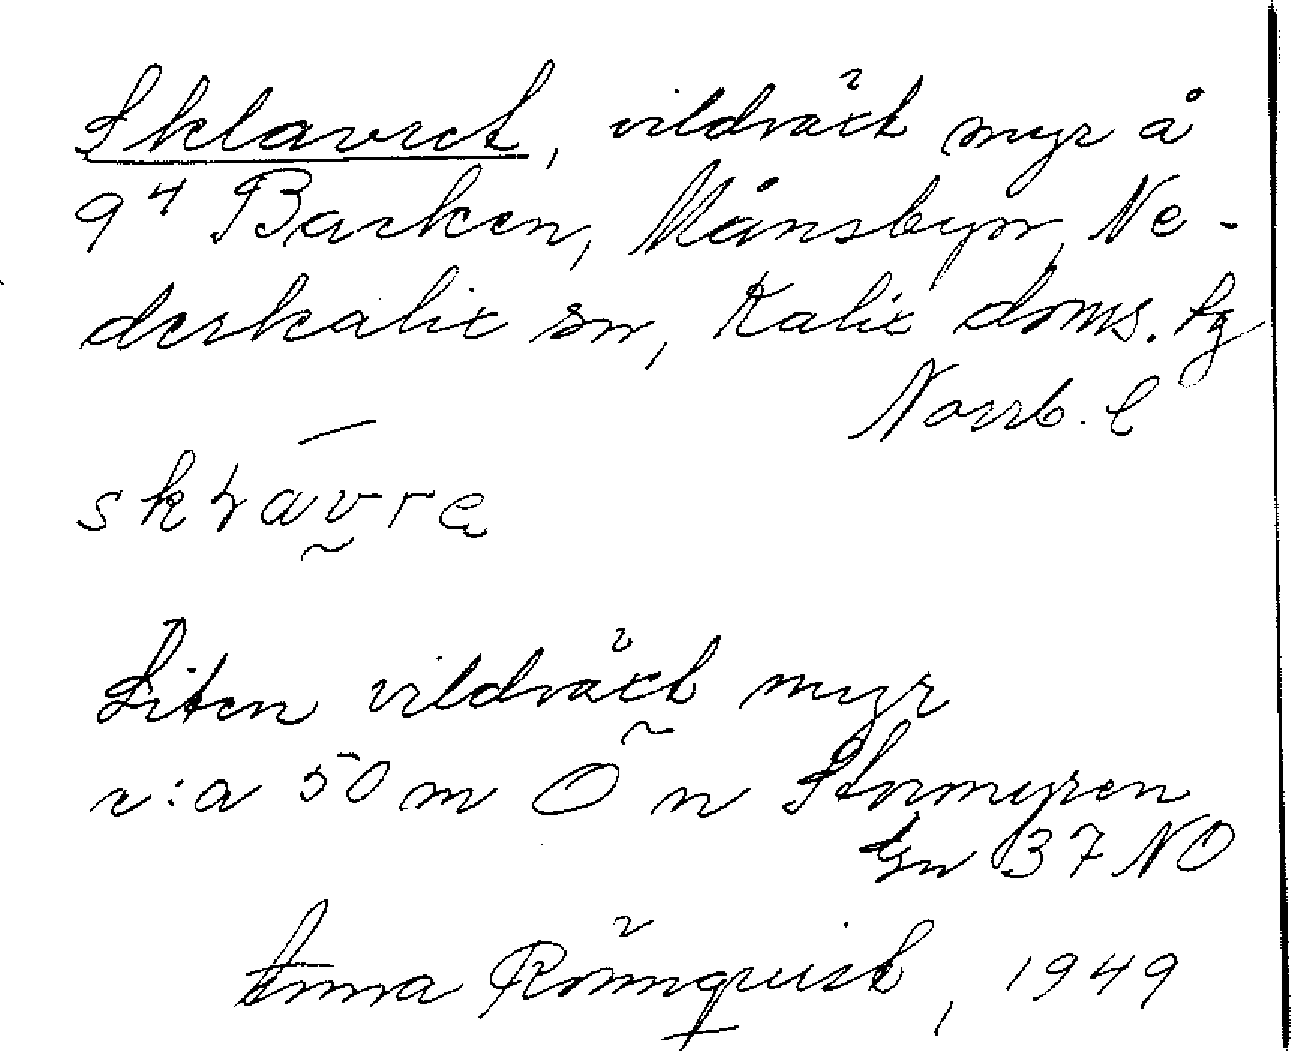 Sklavret, vildväxt myr å
94 Backen, Månsbyn, Ne-
derkalix sn, Kalix doms. tg
Norrb. l
Liten vildväxt myr
c:a 50 m Ö n Stormyren
Gn 37 NO
Anna Rönnquist, 1949